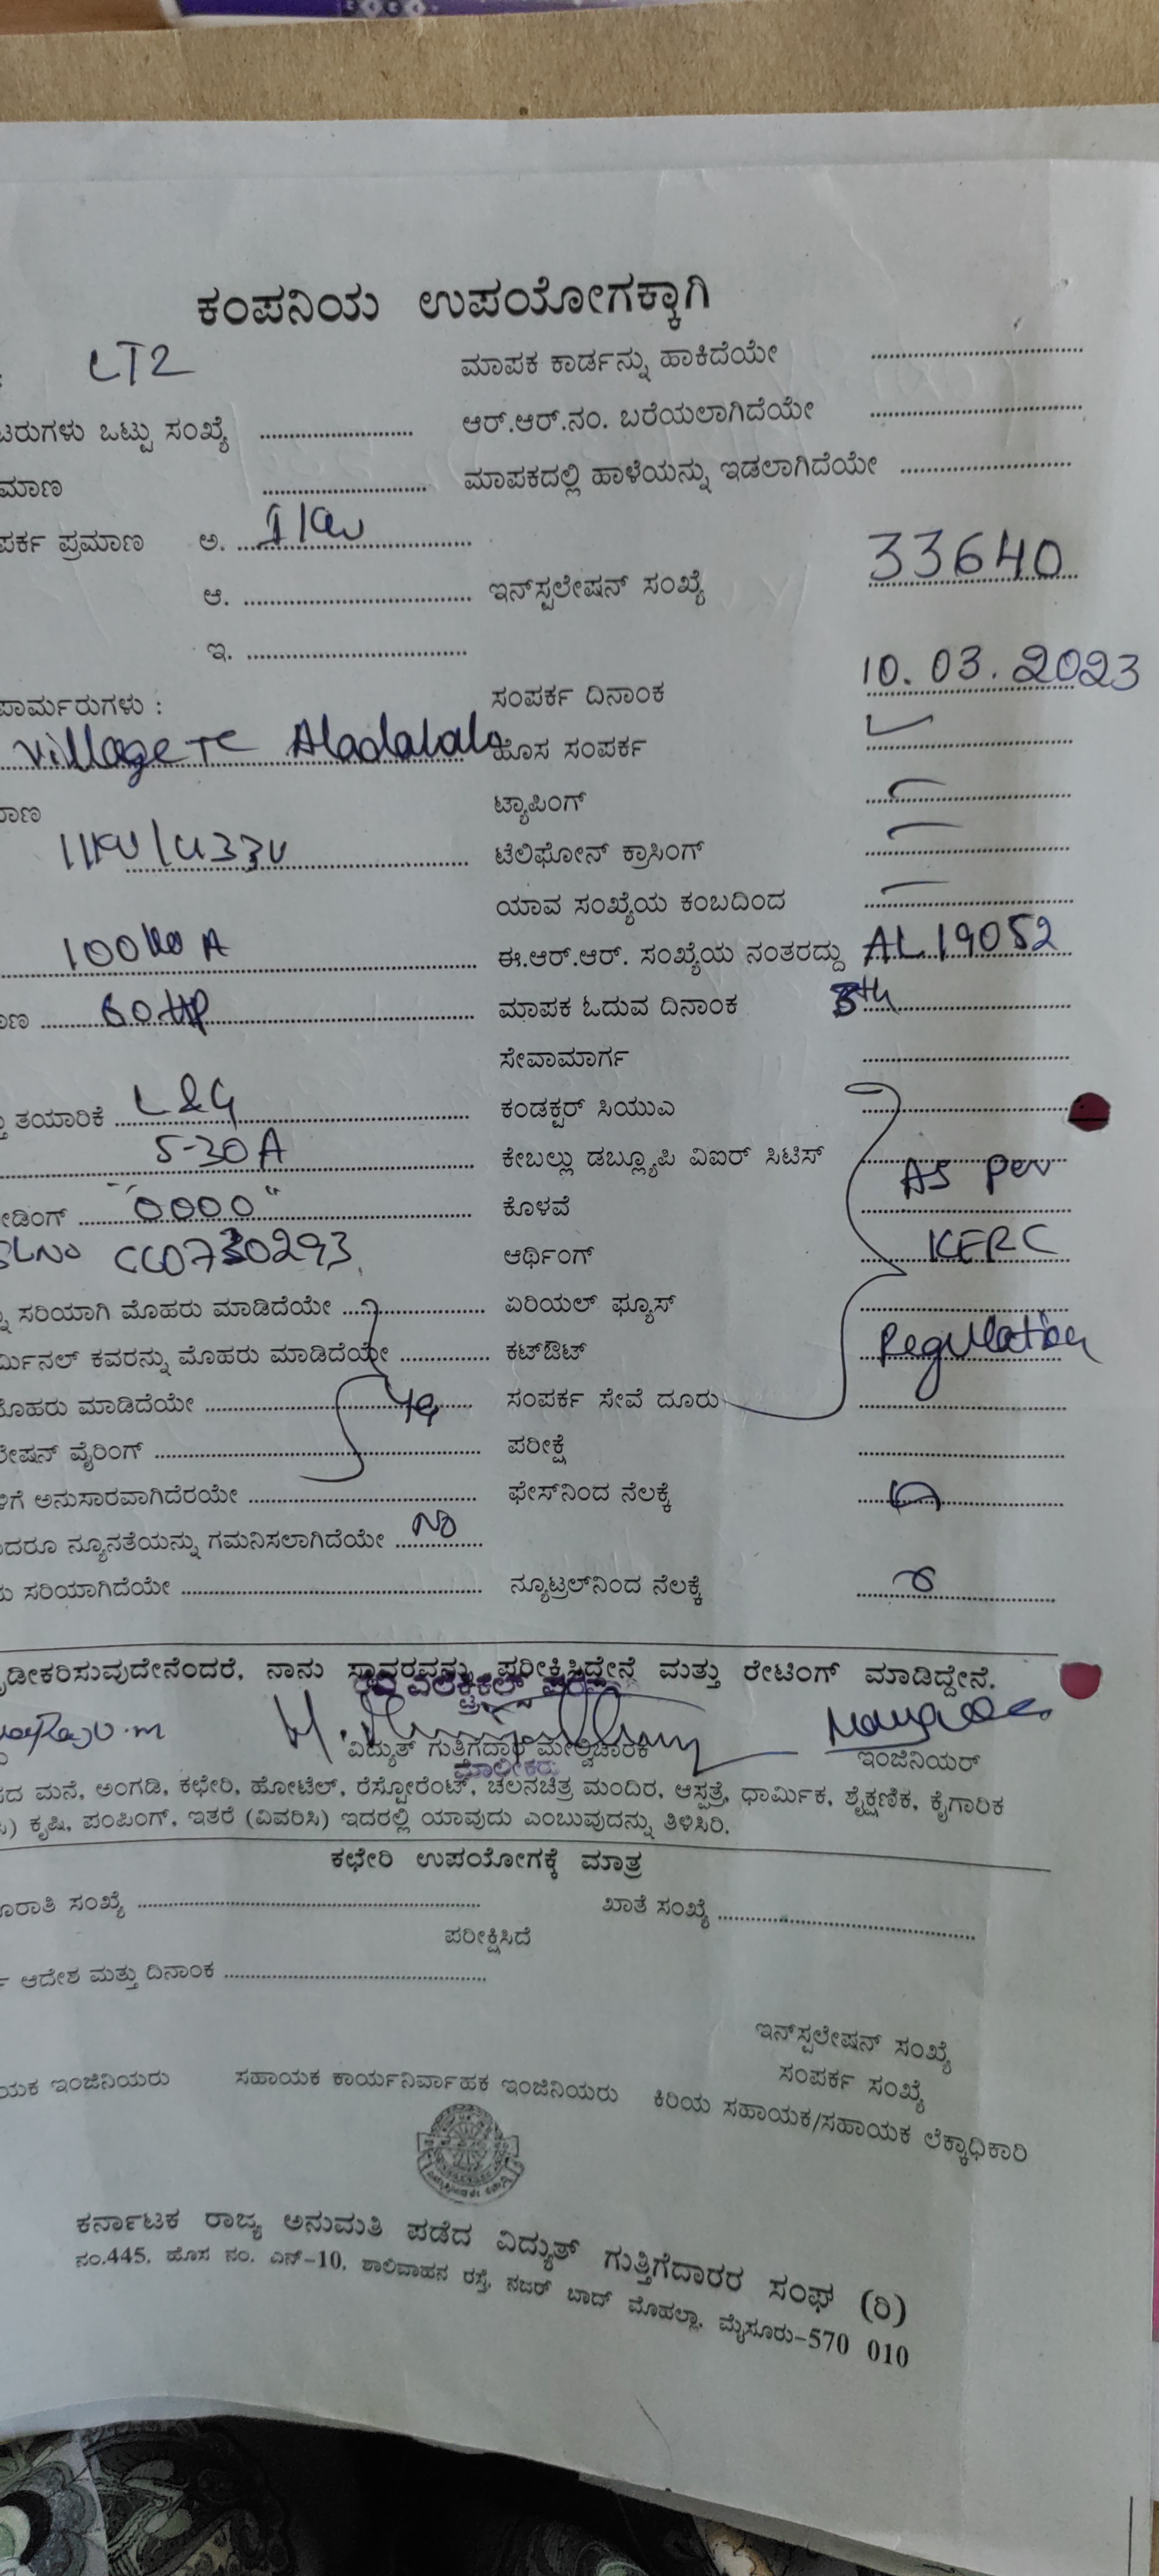 ಕಂಪನಿಯ ಉಪಯೋಗಕ್ಕಾಗಿ
LT2 ಮಾಪಕ ಕಾರ್ಡನ್ನು ಹಾಕಿದೆಯೇ ..........
ಟರುಗಳು ಒಟ್ಟು ಸಂಖ್ಯೆ .......... ಆರ್.ಆರ್.ನಂ. ಬರೆಯಲಾಗಿದೆಯೇ ..........
ಮಾಣ .......... ಮಾಪಕದಲ್ಲಿ ಹಾಳೆಯನ್ನು ಇಡಲಾಗಿದೆಯೇ ..........
ಪರ್ಕ ಪ್ರಮಾಣ ಅ.
ಆ. .......... ಇನ್‌ಸ್ಟಲೇಷನ್ ಸಂಖ್ಯೆ 33640
ಇ. ..........
ಪಾರ್ಮರುಗಳು : ಸಂಪರ್ಕ ದಿನಾಂಕ 10.03.2023
village TC ಹೊಸ ಸಂಪರ್ಕ ✓
ಮಾಣ ಟ್ಯಾಪಿಂಗ್ —
11KV/433V ಟೆಲಿಫೋನ್ ಕ್ರಾಸಿಂಗ್ —
ಯಾವ ಸಂಖ್ಯೆಯ ಕಂಬದಿಂದ —
ಈ.ಆರ್.ಆರ್. ಸಂಖ್ಯೆಯ ನಂತರದ್ದು AL19052
ಮಾಣ 60 HP ಮಾಪಕ ಓದುವ ದಿನಾಂಕ 8th
ಸೇವಾಮಾರ್ಗ ..........
ತಯಾರಿಕೆ L&G ಕಂಡಕ್ಟರ್ ಸಿಯುಎ
5-30A ಕೇಬಲ್ಲು ಡಬ್ಲ್ಯೂಪಿ ವಿಐರ್ ಸಿಟಿಸ್ As per
ೀಡಿಂಗ್ "0000" ಕೊಳವೆ
SLNo CC0730293 ಆರ್ಥಿಂಗ್ KERC
ಸರಿಯಾಗಿ ಮೊಹರು ಮಾಡಿದೆಯೇ .......... ಏರಿಯಲ್ ಫ್ಯೂಸ್
ರ್ಮಿನಲ್ ಕವರನ್ನು ಮೊಹರು ಮಾಡಿದೆಯೇ .......... ಕಟ್‌ಔಟ್ Regulation
ಮೊಹರು ಮಾಡಿದೆಯೇ .......... ಸಂಪರ್ಕ ಸೇವೆ ದೂರು
ಲೇಷನ್ ವೈರಿಂಗ್ .......... ಪರೀಕ್ಷೆ ..........
ಳಿಗೆ ಅನುಸಾರವಾಗಿದೆರಯೇ .......... ಫೇಸ್‌ನಿಂದ ನೆಲಕ್ಕೆ
ದರೂ ನ್ಯೂನತೆಯನ್ನು ಗಮನಿಸಲಾಗಿದೆಯೇ No
ಸರಿಯಾಗಿದೆಯೇ .......... ನ್ಯೂಟ್ರಲ್‌ನಿಂದ ನೆಲಕ್ಕೆ
ಡೀಕರಿಸುವುದೇನೆಂದರೆ, ನಾನು ಸ್ಥಾವರವನ್ನು ಪರೀಕ್ಷಿಸಿದ್ದೇನೆ ಮತ್ತು ರೇಟಿಂಗ್ ಮಾಡಿದ್ದೇನೆ.
ವಿದ್ಯುತ್ ಗುತ್ತಿಗೆದಾರ ಮೇಲ್ವಿಚಾರಕ ಇಂಜಿನಿಯರ್
ಮಾಲೀಕರು
ದ ಮನೆ, ಅಂಗಡಿ, ಕಛೇರಿ, ಹೋಟೆಲ್, ರೆಸ್ಟೋರೆಂಟ್, ಚಲನಚಿತ್ರ ಮಂದಿರ, ಆಸ್ಪತ್ರೆ, ಧಾರ್ಮಿಕ, ಶೈಕ್ಷಣಿಕ, ಕೈಗಾರಿಕ
) ಕೃಷಿ, ಪಂಪಿಂಗ್, ಇತರೆ (ವಿವರಿಸಿ) ಇದರಲ್ಲಿ ಯಾವುದು ಎಂಬುವುದನ್ನು ತಿಳಿಸಿರಿ.
ಕಛೇರಿ ಉಪಯೋಗಕ್ಕೆ ಮಾತ್ರ
ರಾತಿ ಸಂಖ್ಯೆ .......... ಖಾತೆ ಸಂಖ್ಯೆ ..........
ಪರೀಕ್ಷಿಸಿದೆ
ಆದೇಶ ಮತ್ತು ದಿನಾಂಕ ..........
ಇನ್‌ಸ್ಟಲೇಷನ್ ಸಂಖ್ಯೆ
ಸಂಪರ್ಕ ಸಂಖ್ಯೆ
ಯಕ ಇಂಜಿನಿಯರು ಸಹಾಯಕ ಕಾರ್ಯನಿರ್ವಾಹಕ ಇಂಜಿನಿಯರು ಕಿರಿಯ ಸಹಾಯಕ/ಸಹಾಯಕ ಲೆಕ್ಕಾಧಿಕಾರಿ
ಕರ್ನಾಟಕ ರಾಜ್ಯ ಅನುಮತಿ ಪಡೆದ ವಿದ್ಯುತ್ ಗುತ್ತಿಗೆದಾರರ ಸಂಘ (ರಿ)
ನಂ.445, ಹೊಸ ನಂ. ಎನ್-10, ಶಾಲಿವಾಹನ ರಸ್ತೆ, ನಜರ್ ಬಾದ್ ಮೊಹಲ್ಲಾ, ಮೈಸೂರು-570 010